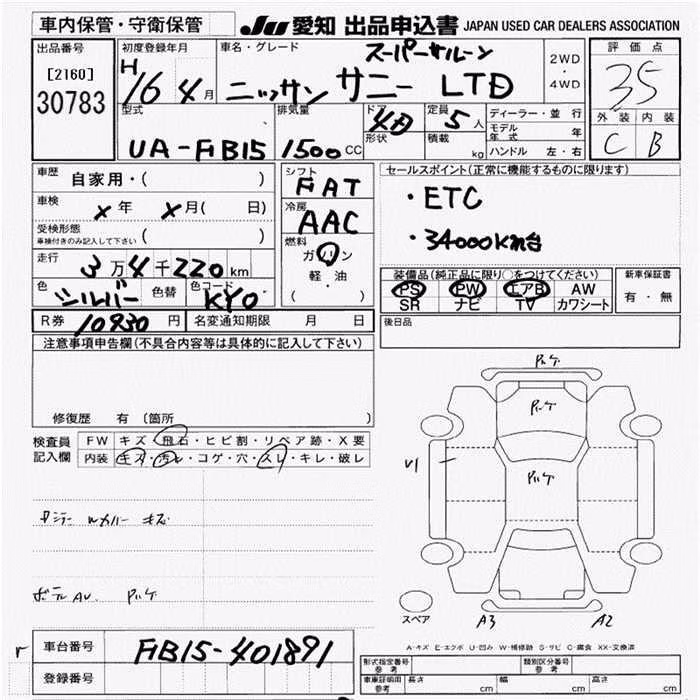 車内保管・守衛保管
JU 愛知 出品申込書 JAPAN USED CAR DEALERS ASSOCIATION
出品番号
[2160]
30783
初度登録年月
H 16 4 月
車名・グレード
スーパーサルーン
ニッサン サニー LTD
2WD
・
4WD
評価点
35
外装 内装
C B
型式
UA-FB15
排気量
1500 CC
ドア
4D
形状
定員
5人
積載
kg
ディーラー・並行
モデル年式 年
ハンドル 左・右
車歴 自家用・( )
車検 x年 x月( 日)
受検形態
車検付きのみ記入して下さい ( )
走行 3万4千220km
色 シルバー 色替 色コード KY0
R券 10930 円 名変通知期限 月 日
シフト
FAT
冷房
AAC
燃料
ガソリン
軽・油
( )
セールスポイント(正常に機能するものに限ります)
・ETC
・34000km台
装備品(純正品に限り○をつけてください)
PS PW エアB AW
SR ナビ TV カワシート
新車保証書
有・無
後日品
注意事項申告欄(不具合内容等は具体的に記入して下さい)
修復歴 有 (箇所 )
検査員
記入欄
FW キズ・飛石・ヒビ割・リペア跡・X要
内装 キズ・汚レ・コゲ・穴・スレ・キレ・破レ
Wカバー キズ
パルケ
パルケ
パルケ
パルケ
U1
スペア
A3
A2
A-キズ E-エクボ U-凹み W-補修跡 S-サビ C-腐食 XX-交換済
車台番号 FB15-401891
登録番号
形式指定番号
参考
類別区分番号
参考
車庫証明用
参考
長さ cm
幅 cm
高さ cm